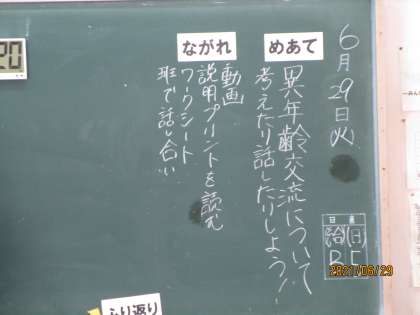 6月29日火
めあて
異年齢交流について
考えたり話したりしよう!
ながれ
動画
説明プリントを読む
ワークシート
班で話し合い
ふり返り
20
日直
2021/06/29